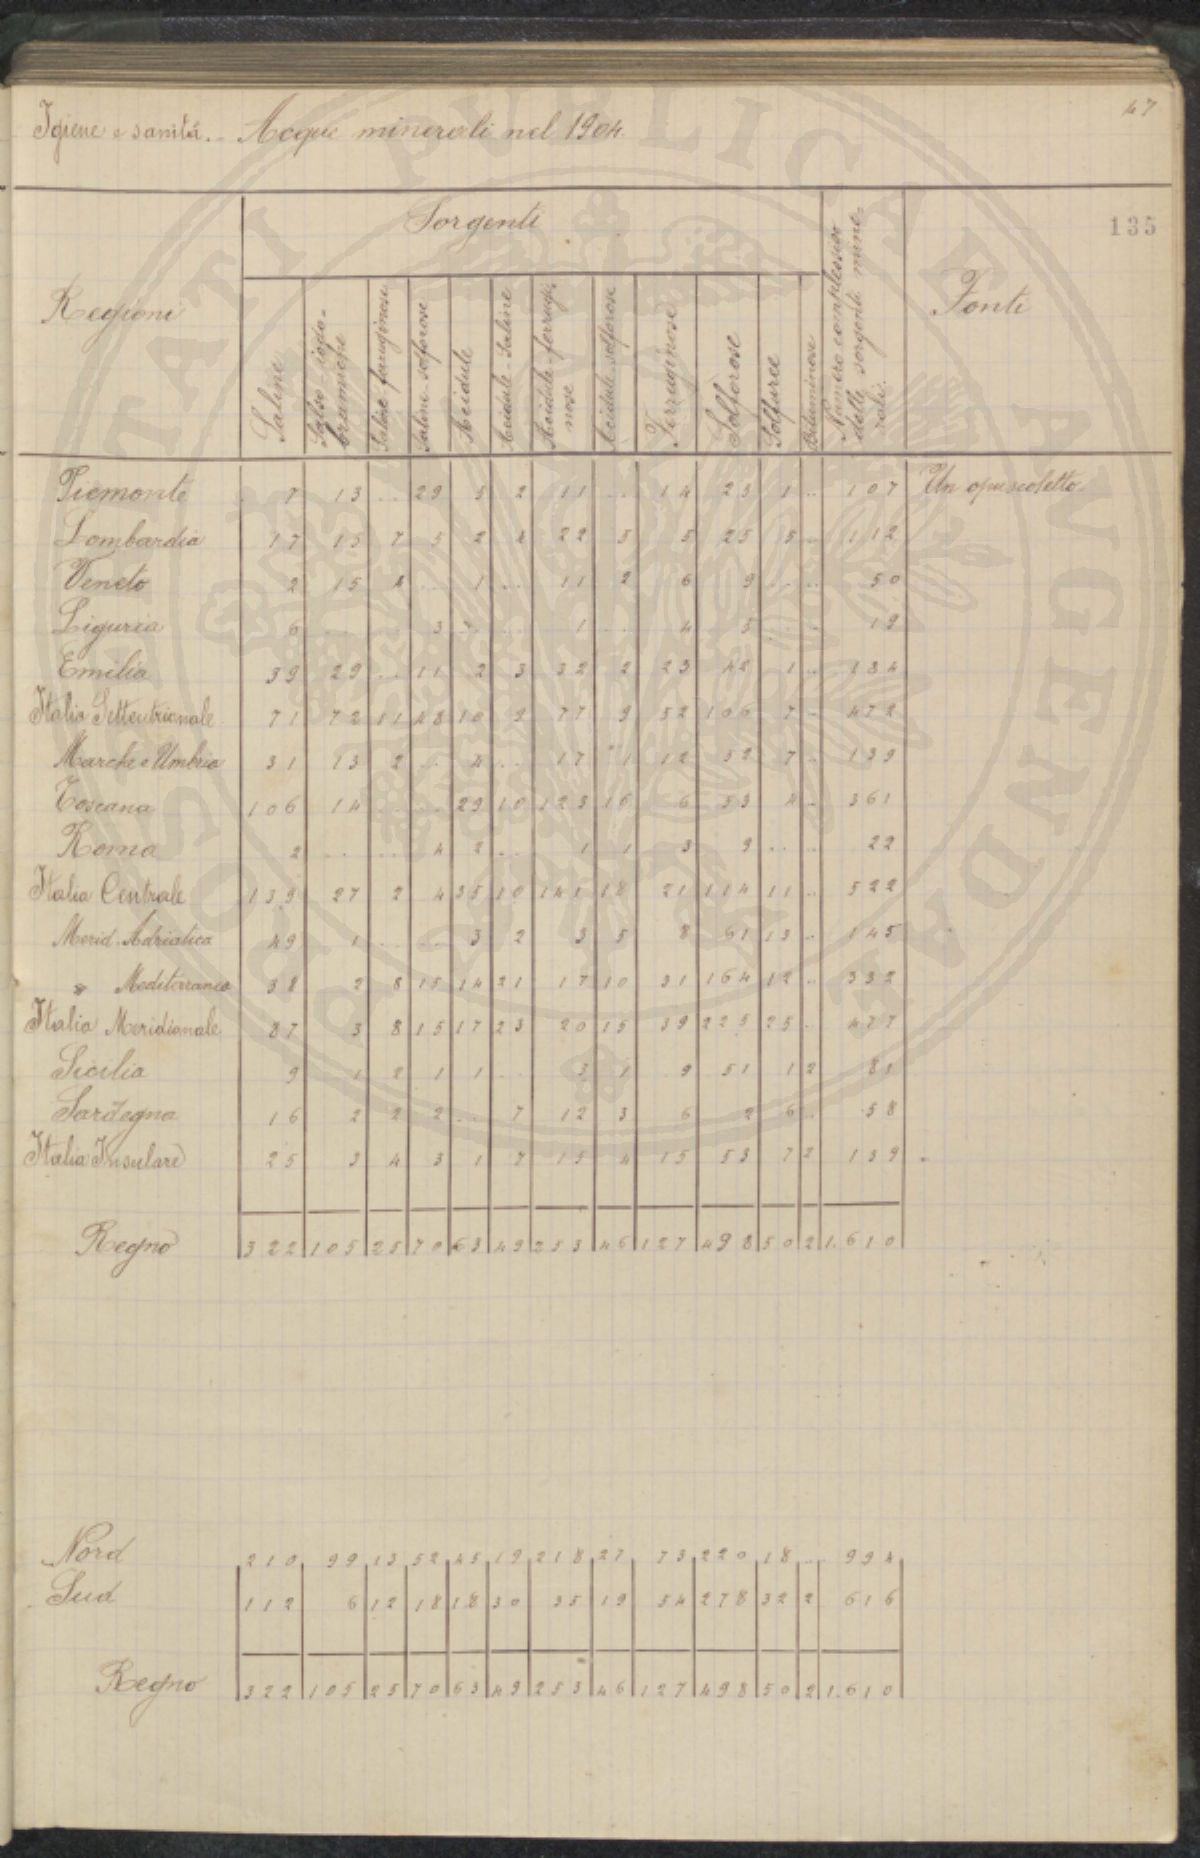 47
Igiene e sanità. – Acque minerali nel 1904.
135
Regioni
Sorgenti
Saline
Salso-iodo-bromiche
Saline-ferruginose
Saline-solforose
Acidule
Acidule-saline
Acidule-ferruginose
Acidule-solforose
Ferruginose
Solforose
Solfuree
Bituminose
Numero complessivo delle sorgenti minerali.
Fonti
Piemonte 7 13 .. 29 5 2 11 .. 14 25 1 .. 107 Un opuscoletto.
Lombardia 17 15 7 5 2 4 22 5 5 25 5 .. 112
Veneto 2 15 4 .. 1 .. 11 2 6 9 .. .. 50
Liguria 6 .. .. 3 .. .. 1 .. 4 5 .. .. 19
Emilia 39 29 .. 11 2 3 32 2 23 42 1 .. 184
Italia Settentrionale 71 72 11 48 10 9 77 9 52 106 7 .. 472
Marche e Umbria 31 13 2 .. 4 .. 17 1 12 52 7 .. 139
Toscana 106 14 .. .. 29 10 123 16 6 53 4 .. 361
Roma 2 .. .. 4 2 .. 1 1 3 9 .. .. 22
Italia Centrale 139 27 2 4 35 10 141 18 21 114 11 .. 522
Merid. Adriatica 49 1 .. .. 3 2 3 5 8 61 13 .. 145
" Mediterranea 38 2 8 15 14 21 17 10 31 164 12 .. 332
Italia Meridionale 87 3 8 15 17 23 20 15 39 225 25 .. 477
Sicilia 9 1 2 1 1 .. 3 1 9 51 1 2 81
Sardegna 16 2 2 2 .. 7 12 3 6 2 6 .. 58
Italia Insulare 25 3 4 3 1 7 15 4 15 53 7 2 139
Regno 322 105 25 70 63 49 253 46 127 498 50 2 1.610
Nord 210 99 13 52 45 19 218 27 73 220 18 .. 994
Sud 112 6 12 18 18 30 35 19 54 278 32 2 616
Regno 322 105 25 70 63 49 253 46 127 498 50 2 1.610